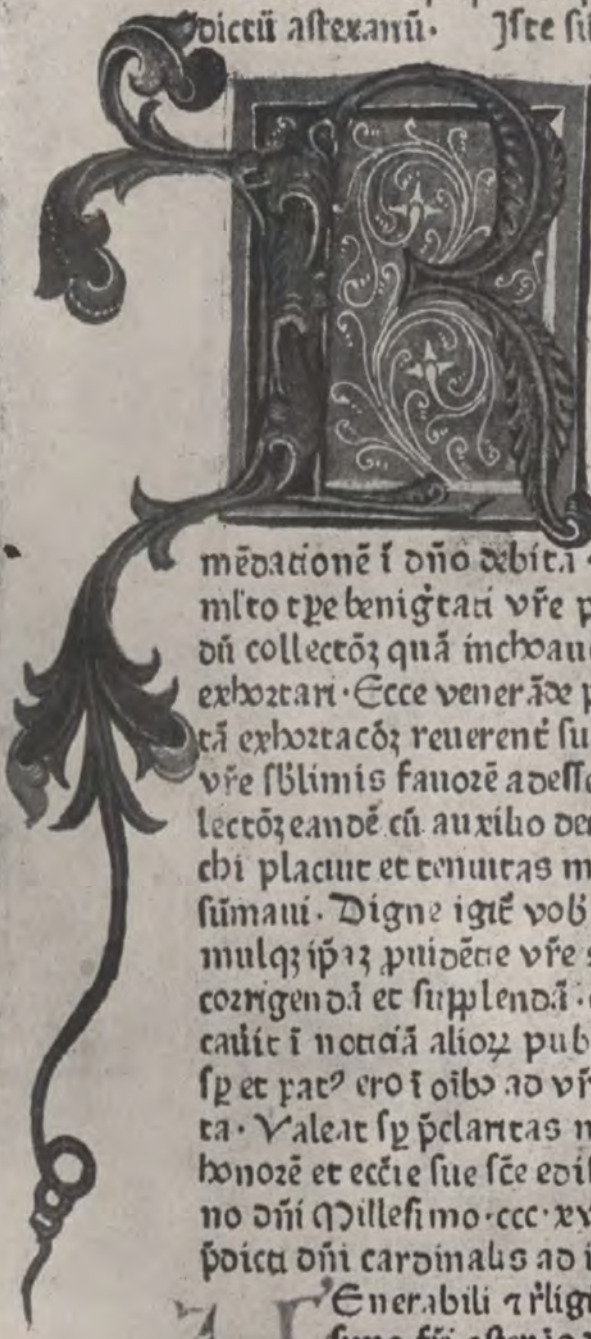 dictū astexanū. Iste
R
mēdationē ī dño debitā
ml'to tp̄e benig̈tati vr̄e
dū collectōꝫ quā inchoau
exhortari. Ecce venerāde
tā exhortacōꝫ reuerent̄ su
vr̄e sb̄limis fauorē adesse
lectōꝫ eandē cū auxilio
chi placuit et tenuitas m
sūmaui. Digne igit̄ vob̄
mulqꝫ ip̄aꝫ ꝓuidētie vr̄e s
corrigendā et supplendā.
cadit ī noticiā alioꝝ pub
sp̄ et ꝑatꝰ ero ī oībꝰ ad vr̄
ta. Valeat sp̄ p̄claritas
honorē et ecc̄ie sue sc̄e edi
no dñi Millesimo.ccc.xv
p̄dicti dñi cardinalis ad
Enerabili ⁊ r̄ligi